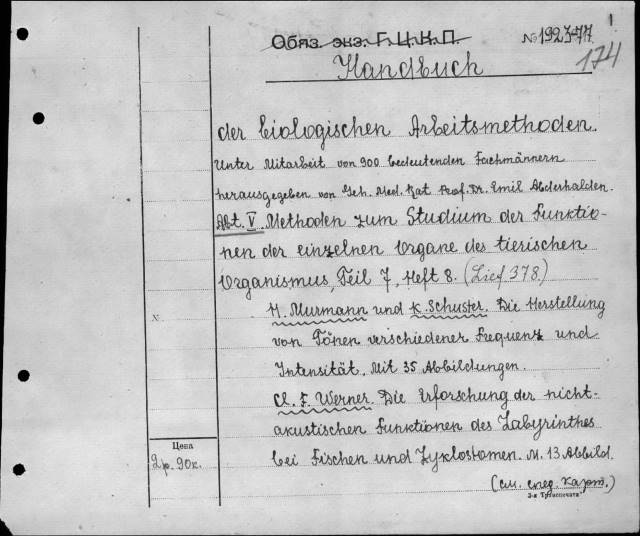 1
Обяз. экз. Г.Ц.К.П.
№ 192377
174
Handbuch
der biologischen Arbeitsmethoden.
Unter Mitarbeit von 900 bedeutenden Fachmännern
herausgegeben von Geh. Med. Rat Prof. Dr. Emil Abderhalden.
Abt. V. Methoden zum Studium der Funktio-
nen der einzelnen Organe des tierischen
Organismus, Teil 7, Heft 8. (Lief 378.)
H. Murmann und K. Schuster. Die Herstellung
von Tönen verschiedener Frequenz und
Intensität. Mit 35 Abbildungen.
Cl. F. Werner. Die Erforschung der nicht-
akustischen Funktionen des Labyrinthes
bei Fischen und Zyklostomen. M. 13 Abbild.
Цена
2р. 90к.
(см. след. карт.)
3-я Тр